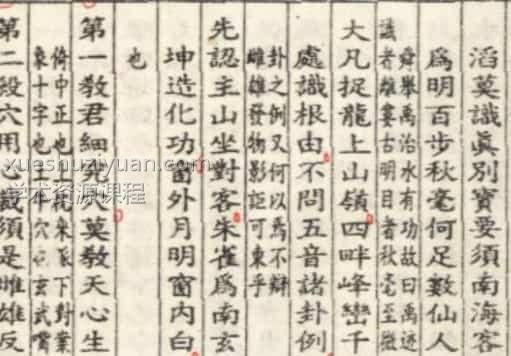 滔莫識眞別寶要須南海客
爲明百步秋毫何足數仙人
舜舉禹治水有功故曰禹迹
識者離婁古明目者秋毫至微
大凡捉龍上山嶺四畔峰巒千
處識根由不問五音諸卦例
卦之例又何以爲不辯
雌雄發物影詎可東乎
先認主山坐對客朱雀爲南玄
坤造化功窗外月明窗内白
也
第一教君細究莫教天心生
倚中正也朱下對業
十字也不穴玄武嘴
第二段穴用心裁須是雌雄反
xueshuziyuan.com
学术资源课程